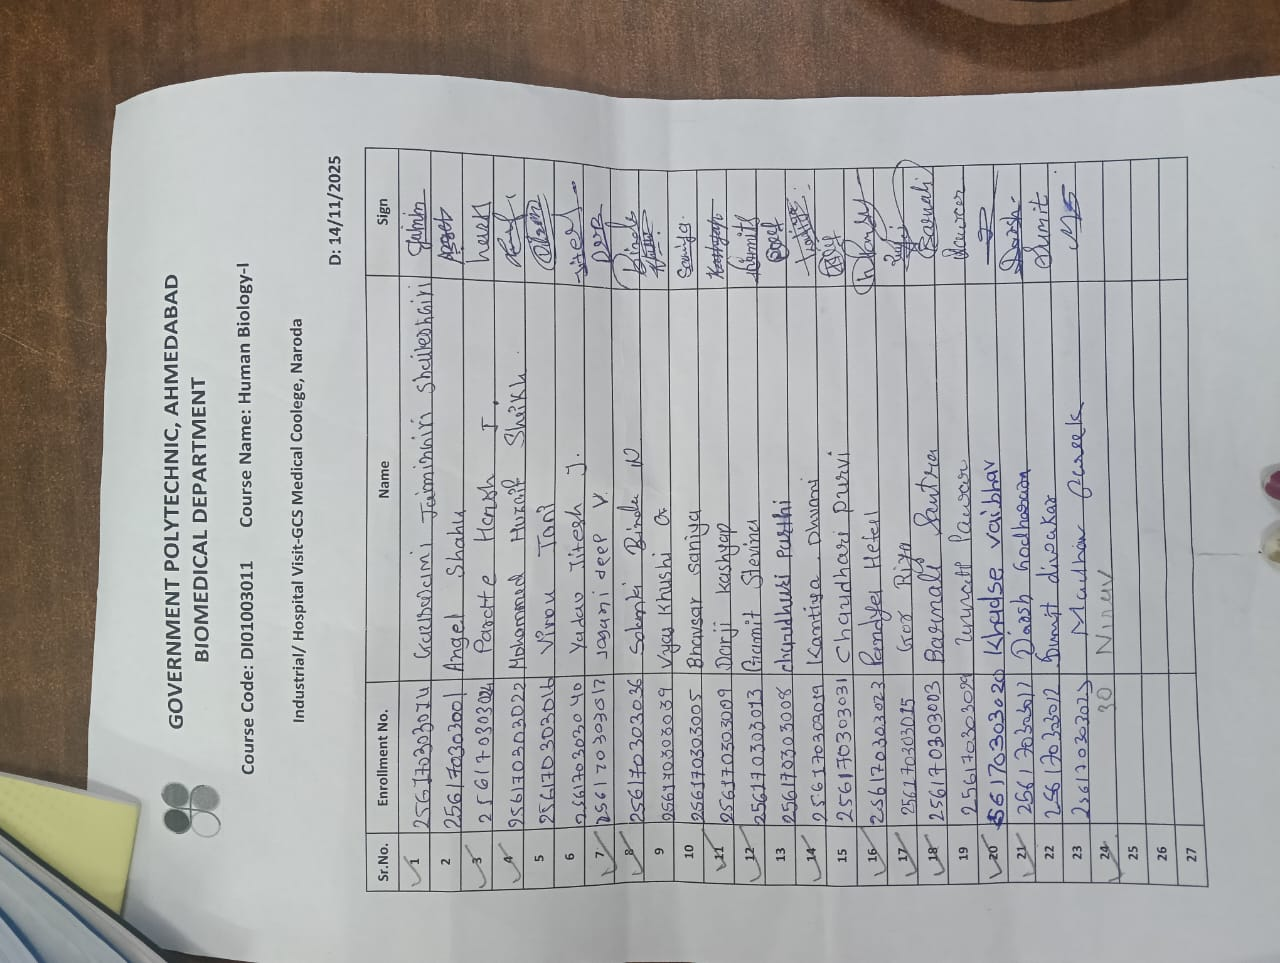 GOVERNMENT POLYTECHNIC, AHMEDABAD
BIOMEDICAL DEPARTMENT
Course Code: DI01003011 Course Name: Human Biology-I
Industrial/ Hospital Visit-GCS Medical Coolege, Naroda
D: 14/11/2025
Sr.No. Enrollment No. Name Sign
1 Jaimingiri Shaileshgiri Jaimin
2 256170303001 Angel Shahu Angel
3 Harsh J. Harsh
4 256170303022 Mohammad Huzaif Sheikh
5 256170303016 Jani
6 256170303040 Yadav Jitesh J. Jitesh
7 256170303017 Jogani deep V. Deep
8 256170303036 Solanki Bindu N Bindu
9 256170303039 Vyas Khushi G
10 256170303005 Bhavsar saniya Saniya
11 256170303009 Darji kashyap Kashyap
12 256170303013 Gramit Stevina
13 256170303008 chaudhuri
14 256170303019 Kantiya Dhvani
15 256170303031 Chaudhari purvi
16 256170303023 Pandya Hetal
17 256170303015 Gor Riya
18 256170303003 Barnali Santra Barnali
19 Pawar Pawar
20 256170303020 Khadse vaibhav
21 Darsh Godhasara Darsh
22 256170303012 Sumit divakar Sumit
23 256170303023 Madhav Pareek
24 30
25
26
27